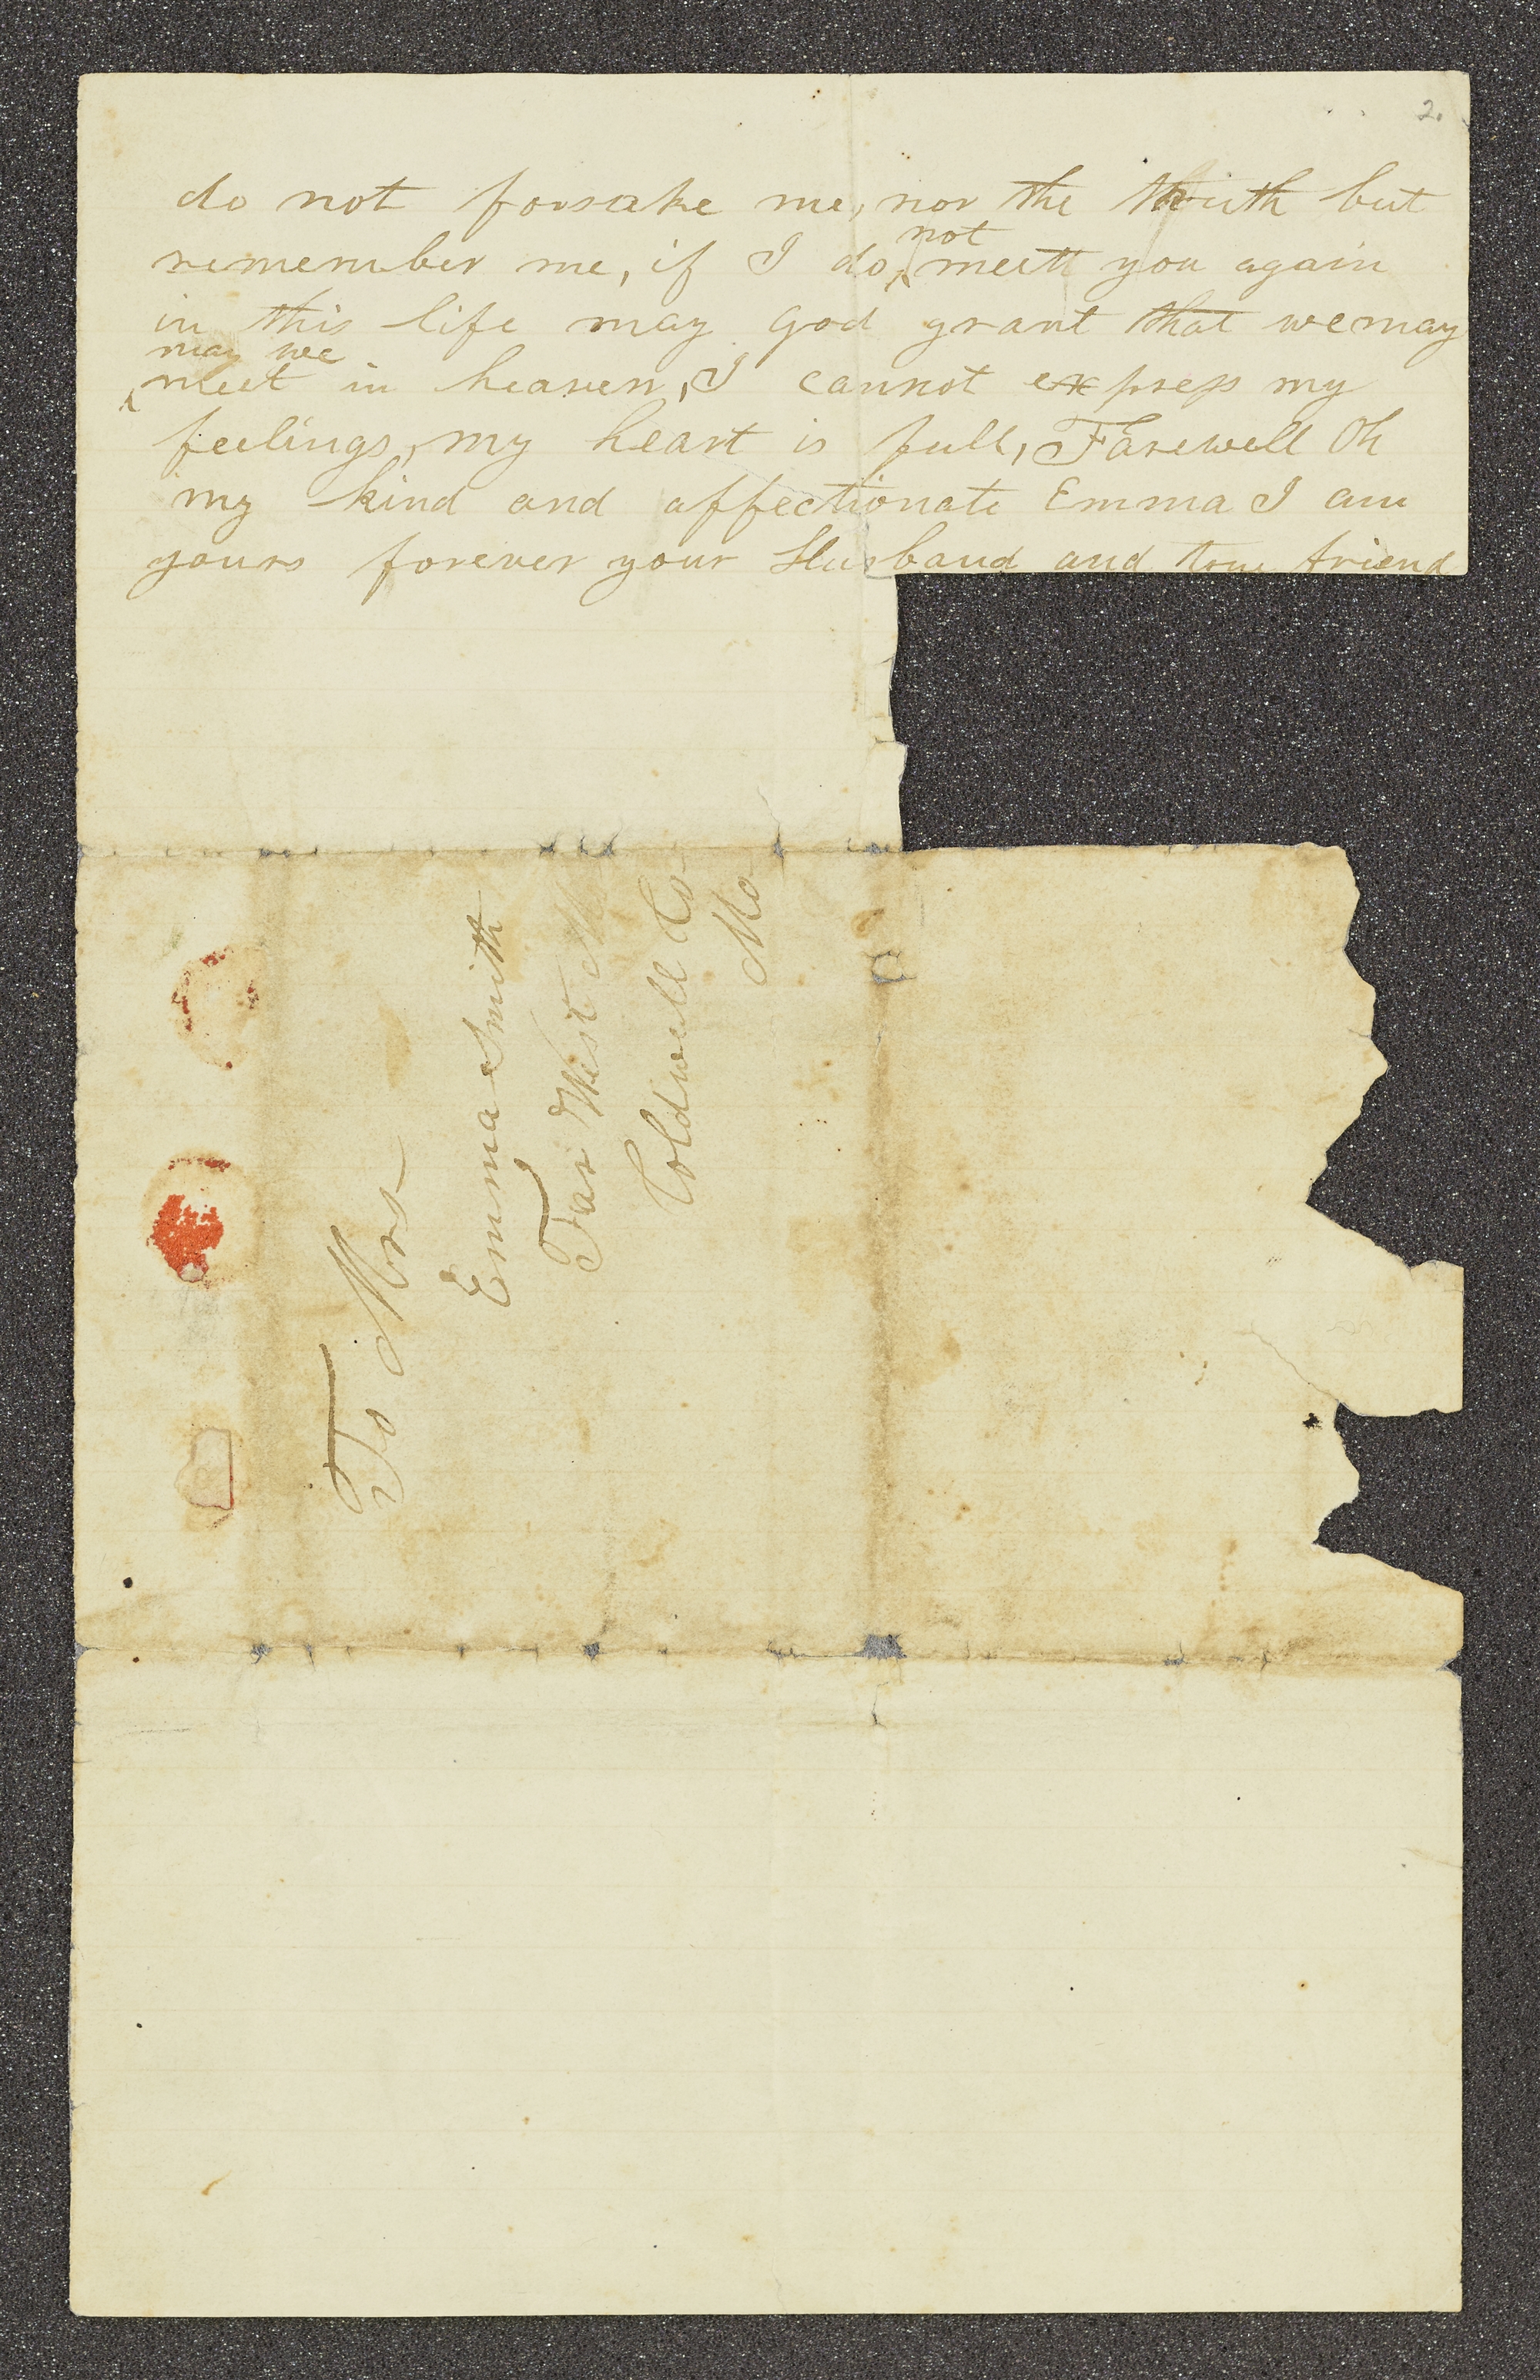 2.
do not forsake me, nor the truth but
not
remember me, if I do meett you again
in this life may God grant that we may
may we
meet in heaven, I cannot express my
feelings, my heart is full, Farewell Oh
my kind and affectionate Emma I am
yours forever your Husband and true friend
To Mrs
Emma Smith
Far West
Coldwell Co
Mo